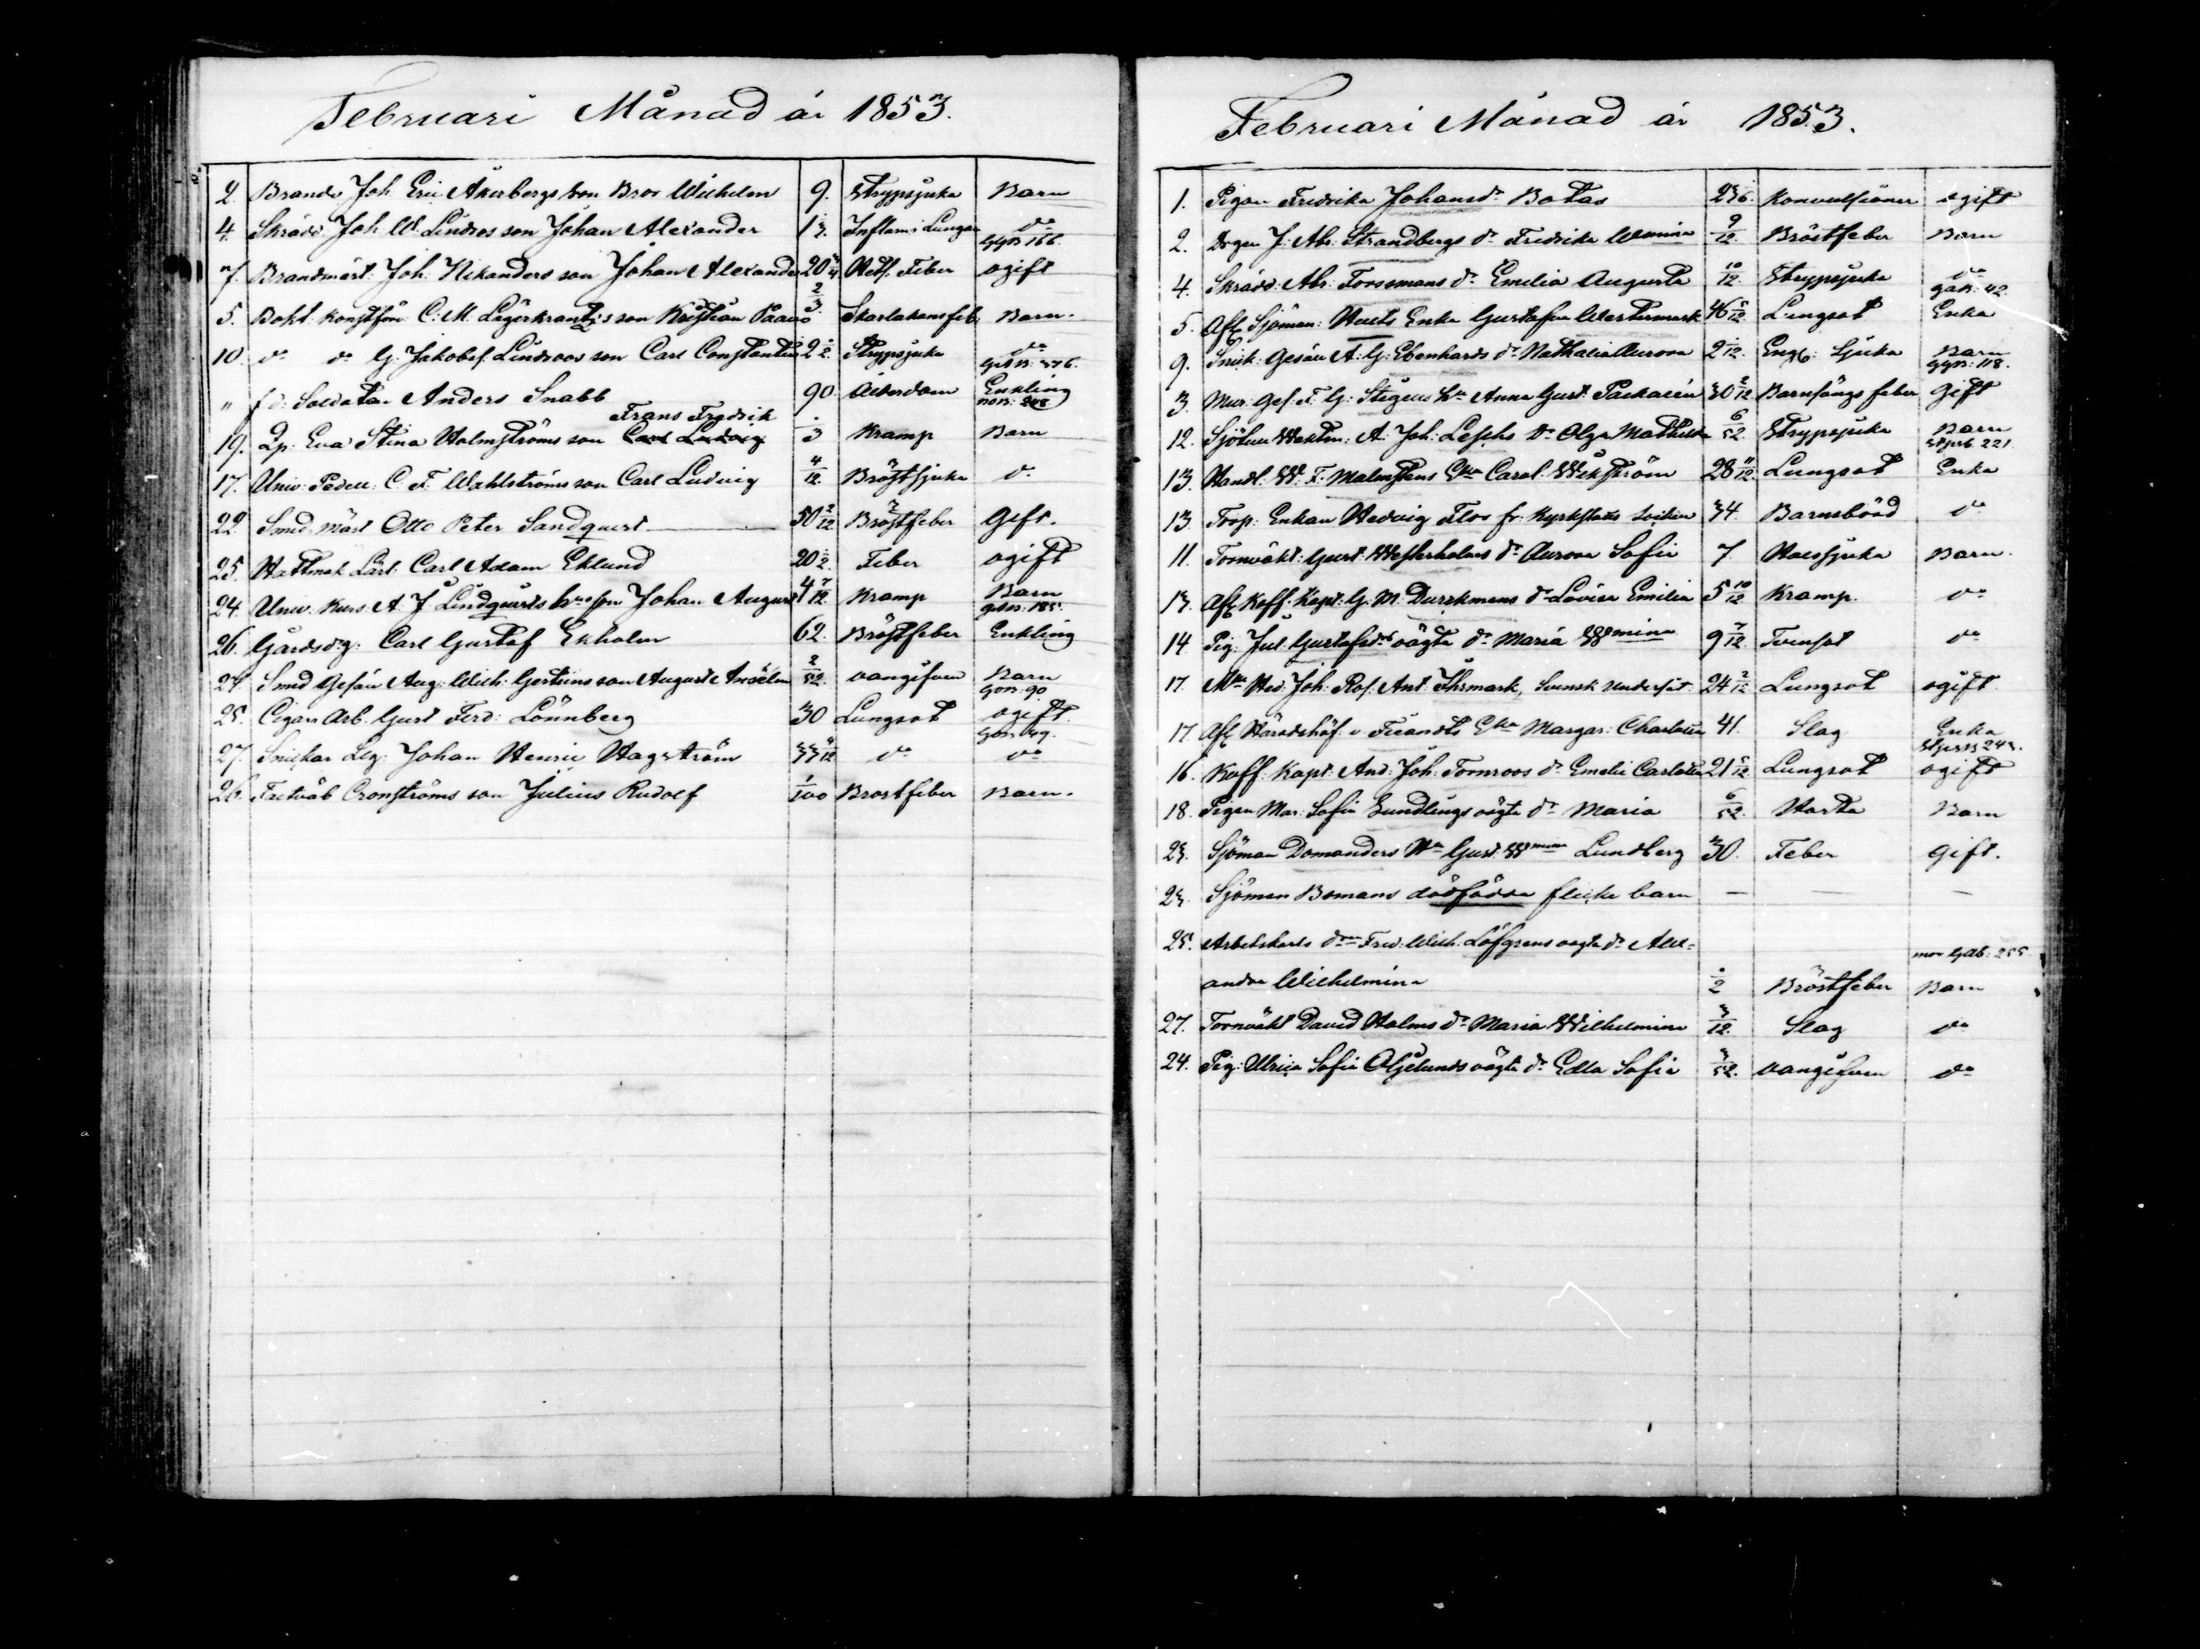 Februari Månad år 1853.
2. Brandv Joh Eric Åkerbergs son Bror Wilhelm 9. Strypsjuka Barn
4. Skrädd: Joh. W. Lindros son Johan Alexander 1 Inflam: i Lungor do
166.
7. Brandmäst: Joh. Nikanders son Johan Alexander 20 3/4 Feber ogift
5. Bokh. C. M. Lägerkrantz's son Kristian 2/3 Skarlakansfeb: Barn.
10. do do G. Jakobsf. Lindroos son Carl Constantin 2 1/2 Strypsjuka do
376.
" f d: Soldaten Anders Snabb 90 Ålderdom Enkling
Frans Fredrik
19. Qp: Eva Stina Holmströms son Carl Ludvig 3 Kramp Barn
17. Univ: Pedell: C. F. Wahlströms son Carl Ludvig 4/12 Bröstsjuka do
22. Smed mäst Otto Peter Sandqvist 50 2/12 Bröstfeber Gift.
25. Hattmak Lärl: Carl Adam Eklund 20 1/2 Feber ogift
24. Univ. Kurs. A. J. Lindqvists son Johan August 4 7/12 Kramp Barn
26. Gårdsdrg: Carl Gustaf Ekholm 62. Bröstfeber Enkling
24. Smed Gesän Aug: Wilh: son August 2/52. oangifven Barn
90
25. Cigarr Arb. Gust Ferd: Lönnberg 30 Lungsot ogift.
27. Snickar Leg: Johan Henric Hagström 33 do do
26. Cronströms son Julius Rudolf 1/100 Bröstfeber Barn.
Februari Månad år 1853.
1. Pigan Fredrika Johansdr Botas 236. Konvulsioner ogift
2. J: Ab: Strandbergs dr Fredrika Wmina 9/12. Bröstfeber Barn
4. Skrädd: Abr: Forssmans dr Emelia Augusta 10/12. Strypsjuka do
42
5. Afl Sjöman: Enka Gustafva Westermark 46 5/12. Lungsot Enka
9. Snick. Gesän A. G. Ebenhards dr Nathalia Aurora 2 1/12. Engl: Sjuka Barn
118.
3. Mur: Ges. F: G: hu Anna Gust: 30 2/12 Barnsängs feber Gift
12. A: Joh: dr Olga Mathilda 6/52. Strypsjuka Barn
221
13. Handl: W: F: Malmstens Eka Carol: Wikström 28 11/12. Lungsot Enka
13 Torp: Enkan Hedvig Flos fr: Kyrkslätts 34. Barnsbörd do
11. Tornväkt: Gust: Westerholms dr Aurora Sofia 7 Halssjuka Barn.
13. Afl Koff. Kapt: G. M. dr Lovisa Emilia 5 10/12 Kramp. do
14 Pig: Jul. Gustafsdrs oägta dr Maria Wmina 9 7/12 Tvinsot do
17. Joh. Rof. Ant. Öhrmark, Svensk undersåt 24 2/12 Lungsot ogift.
17 Afl Häradshöf. v. Eka Margar: Charlotta 41. Slag Enka
243.
16. Koff. Kapt: And: Joh: Tornroos dr Emelie Carlotta 21 5/12 Lungsot ogift
18. Pigan Mar: Sofia Sundlings oägta dr Maria 6/52. Hosta Barn
23. Sjöman Domanders Hu Gust: Wmina Lundberg 30. Feber Gift.
23. Sjöman Bomans dödfödda flicke barn — — —
25. Arbetskarls drn Fred: Wilh: Löfgrens oägta dr Alex=
mor 255
andra Wilhelmina 1/2 Bröstfeber Barn
27. Tornväkt David Holms dr Maria Wilhelmina 3/12. Slag do
24. Pig: Ulrica Sofia oägta dr Edla Sofia 3/52. oangifven do